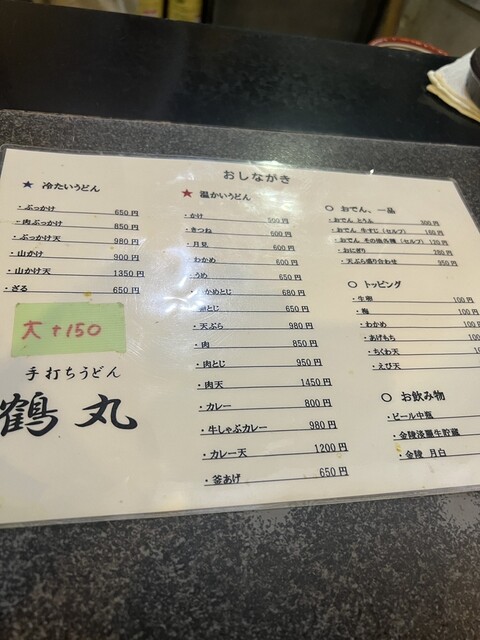 おしながき
★ 冷たいうどん
・ぶっかけ 650円
・肉ぶっかけ 850円
・ぶっかけ天 980円
・山かけ 900円
・山かけ天 1350円
・ざる 650円
大 +150
手打ちうどん
鶴丸
★ 温かいうどん
・かけ 500円
・きつね 600円
・月見 600円
・わかめ 600円
・うめ 650円
かめとじ 680円
とじ 650円
・天ぷら 980円
・肉 850円
・肉とじ 950円
・肉天 1450円
・カレー 800円
・牛しゃぶカレー 980円
・カレー天 1200円
・釜あげ 650円
○ おでん、一品
・おでん とうふ 300円
・おでん 牛すじ（セルフ） 160円
・おでん その他各種（セルフ） 120円
・おにぎり
・天ぷら盛り合わせ 950円
○ トッピング
・生卵 100円
・梅 100円
・わかめ 100円
・あげもち 100
・ちくわ天
・えび天
○ お飲み物
・ビール中瓶
・金陵淡麗生貯蔵
・金陵 月白